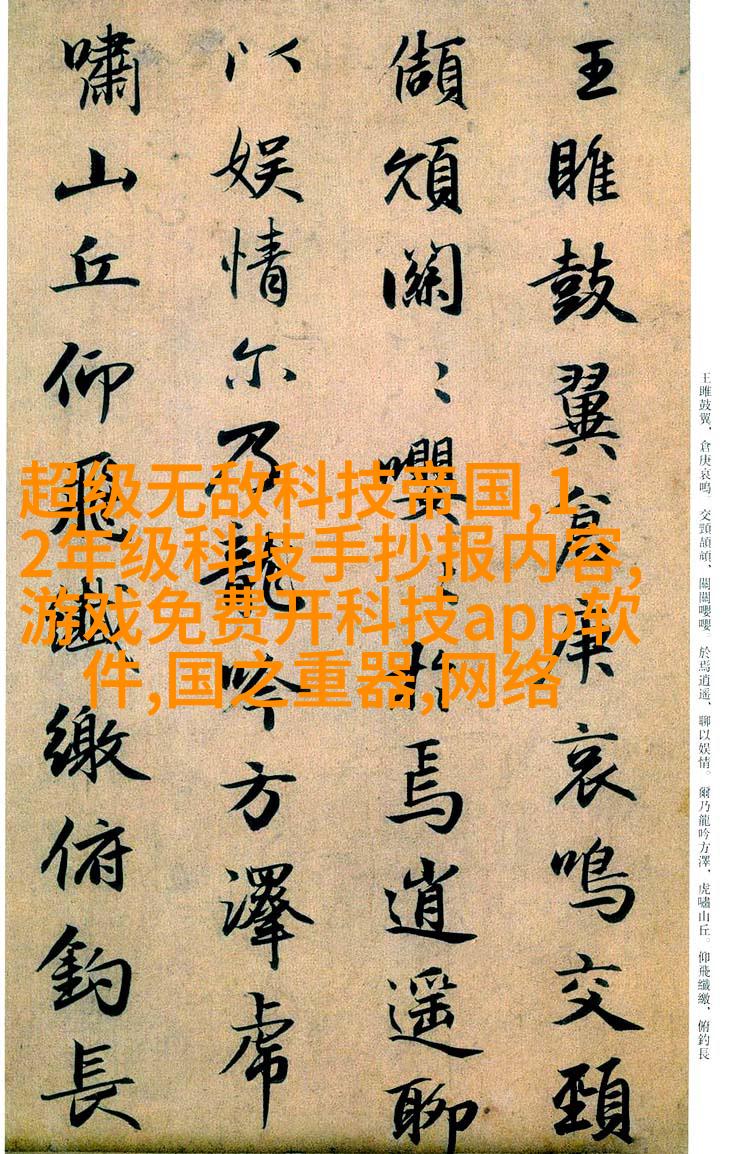 王雎鼓翼倉庚哀鳴交頸
頡頏關〻嚶〻於焉逍遥聊
以娱情尔乃龍吟方澤虎
嘯山丘仰飛纖繳俯釣長
王雎鼓翼、倉庚哀鳴。交頸頡頏、關關嚶嚶。於焉逍遥、聊以娱情。爾乃龍吟方澤、虎嘯山丘。仰飛纖繳、俯釣長
超级无敌科技帝国,1
2年级科技手抄报内容,
游戏免费开科技app软
件,国之重器,网络